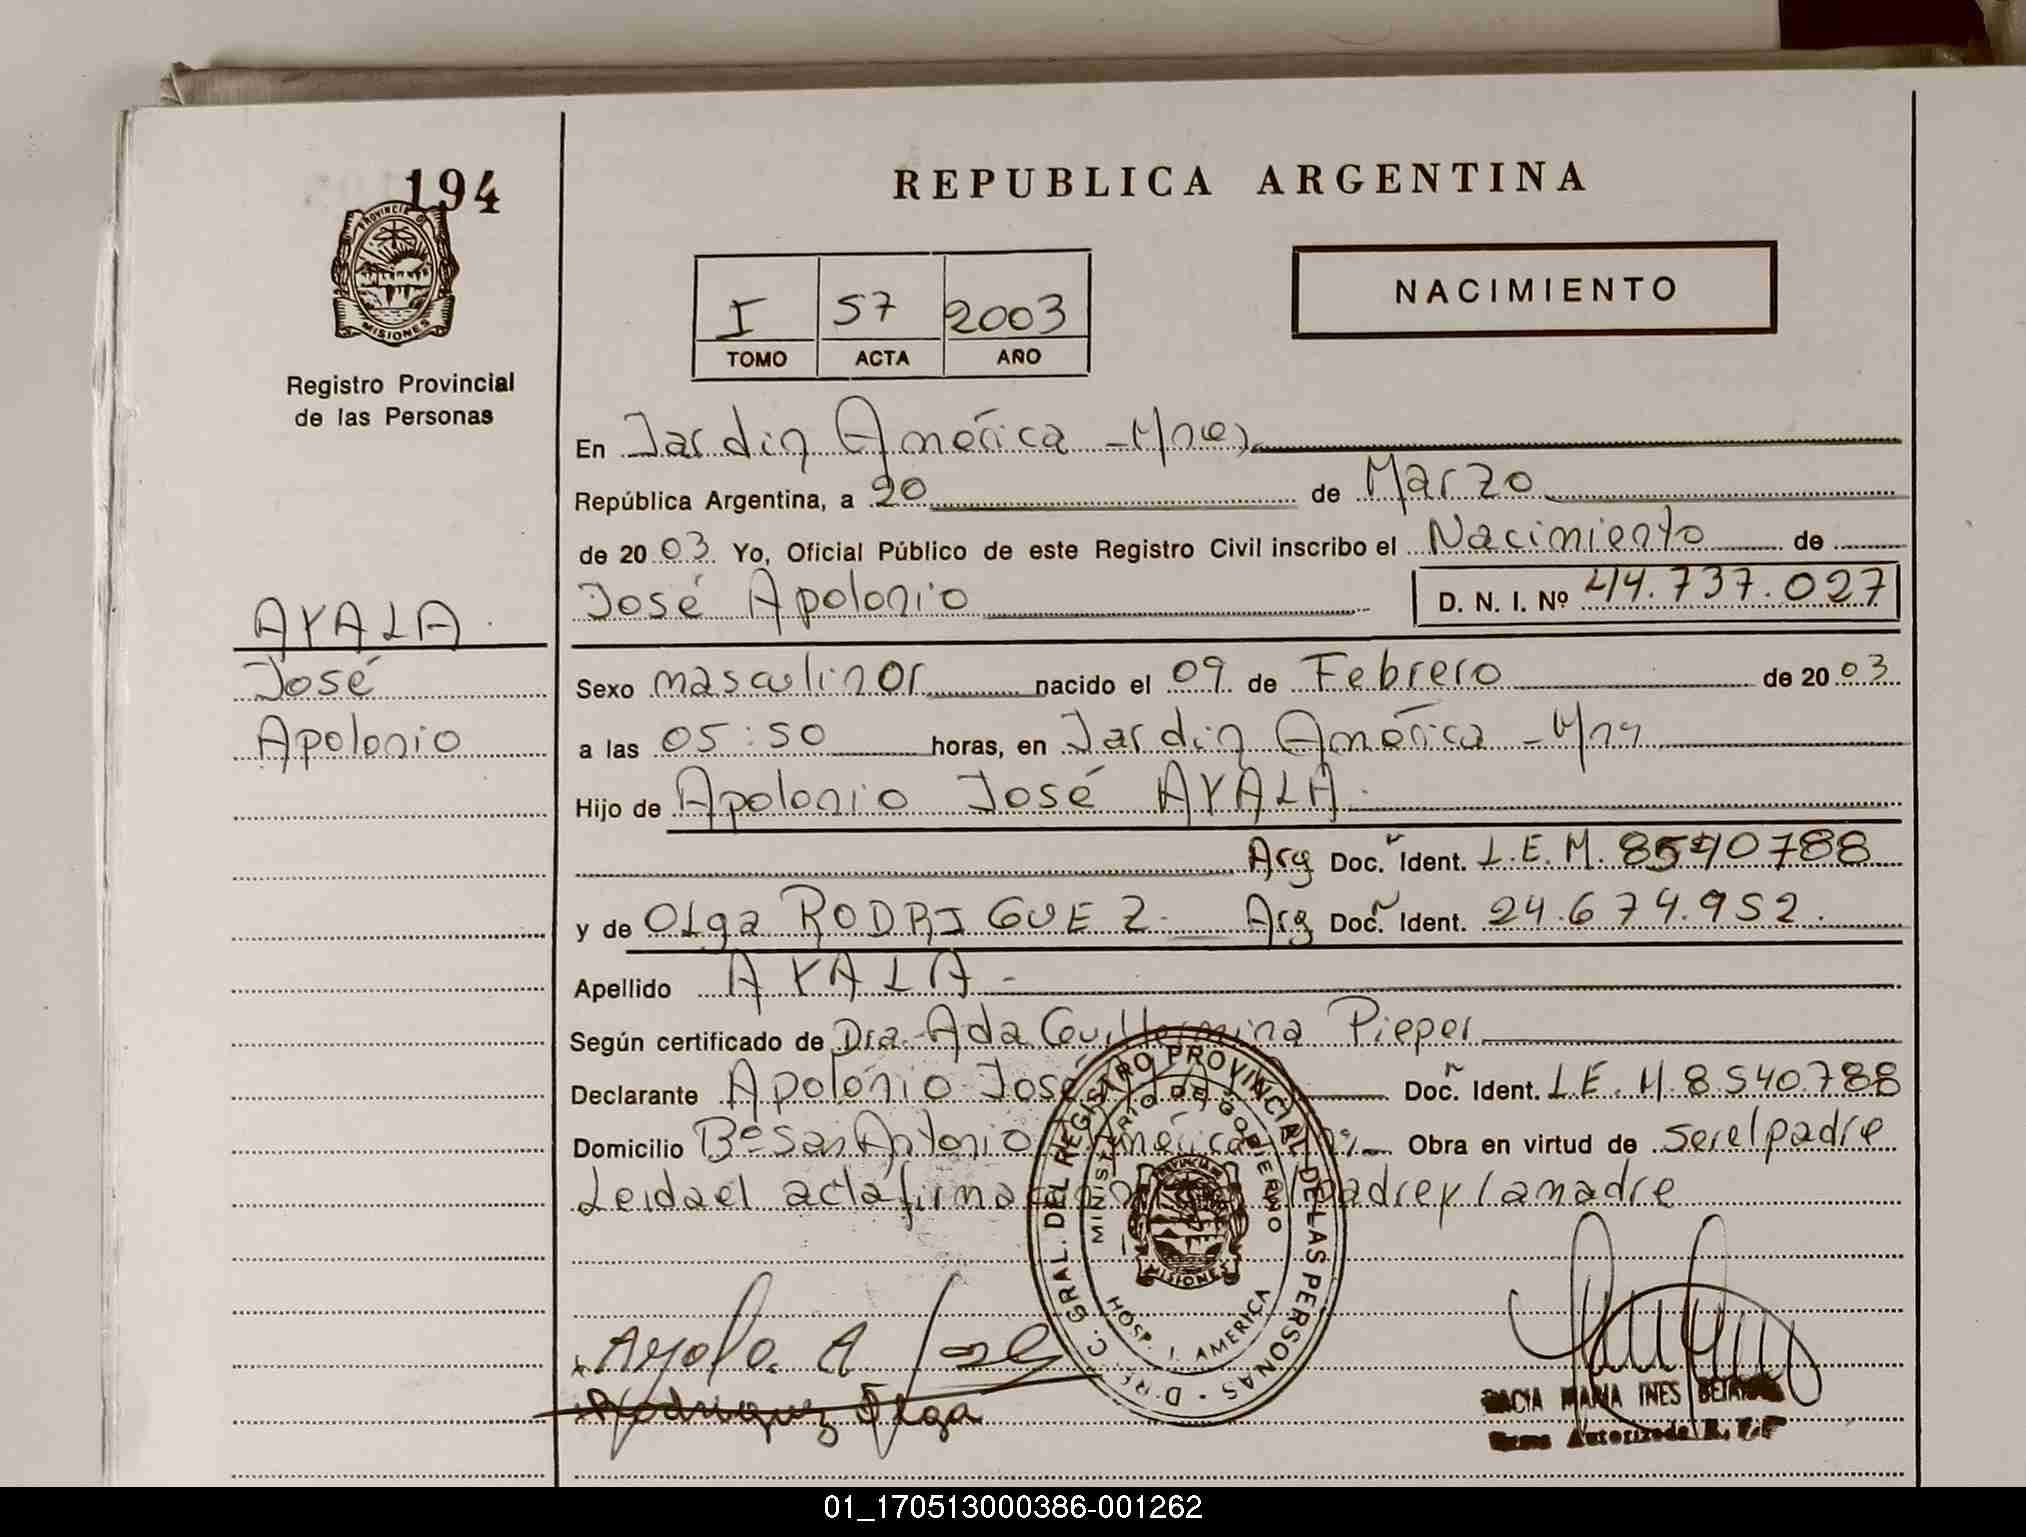 194
PROVINCIA D
MISIONES
Registro Provincial
de las Personas
REPUBLICA ARGENTINA
I 57 2003
TOMO ACTA AÑO
NACIMIENTO
En Jardin América - Mnes
República Argentina, a 20 de Marzo
de 2003 Yo, Oficial Público de este Registro Civil inscribo el Nacimiento de
José Apolonio D. N. I. Nº 44.737.027
AYALA
José
Apolonio
Sexo masculinor nacido el 09 de Febrero de 2003
a las 05:50 horas, en Jardin América - Mns
Hijo de Apolonio José AYALA.
Arg Doc. Ident. L.E.M. 8540788
y de OLga RODRIGUEZ - Arg Doc. Ident. 24.674.952.
Apellido AYALA -
Según certificado de Dra. Ada Guillermina Pieper
Declarante Apolonio José Doc. Ident. L.E.M. 8.540.788
Domicilio Bº San Antonio América Obra en virtud de ser el padre
Leida el acta firma padre y la madre
DIREC. GRAL. DEL REGISTRO PROVINCIAL DE LAS PERSONAS
MINISTERIO DE GOBIERNO
PROVINCIA
MISIONES
HOSP. J. AMERICA
Ayala A José
Rodriguez Olga
MARIA INES
Autorizada R. P. P
01_170513000386-001262